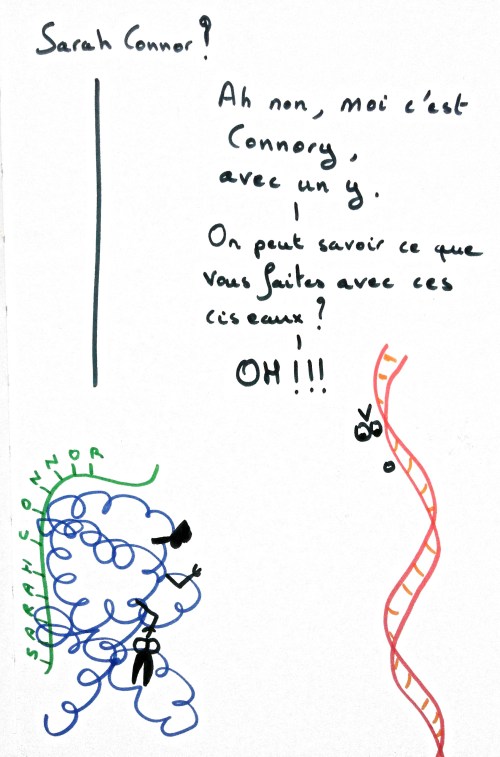 Sarah Connor?
Ah non, moi c'est
Connory,
avec un y.
On peut savoir ce que
vous faites avec ces
ciseaux?
OH!!!
SARAH CONNOR